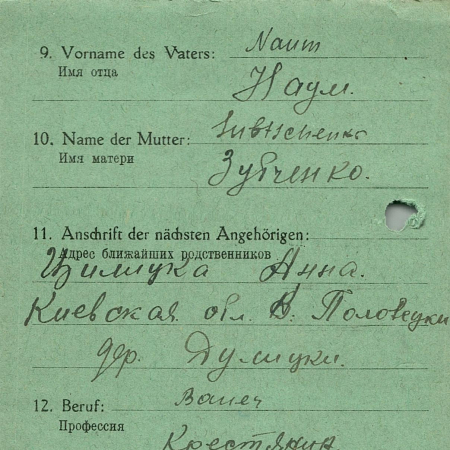 9. Vorname des Vaters: Naum
Имя отца
Наум.
10. Name der Mutter: Subtschenko
Имя матери
Зубченко.
11. Anschrift der nächsten Angehörigen:
Адрес ближайших родственников
Анна.
Киевская обл. В. Половецки
дер. Дулицки.
12. Beruf: Bauer
Профессия
Крестянин